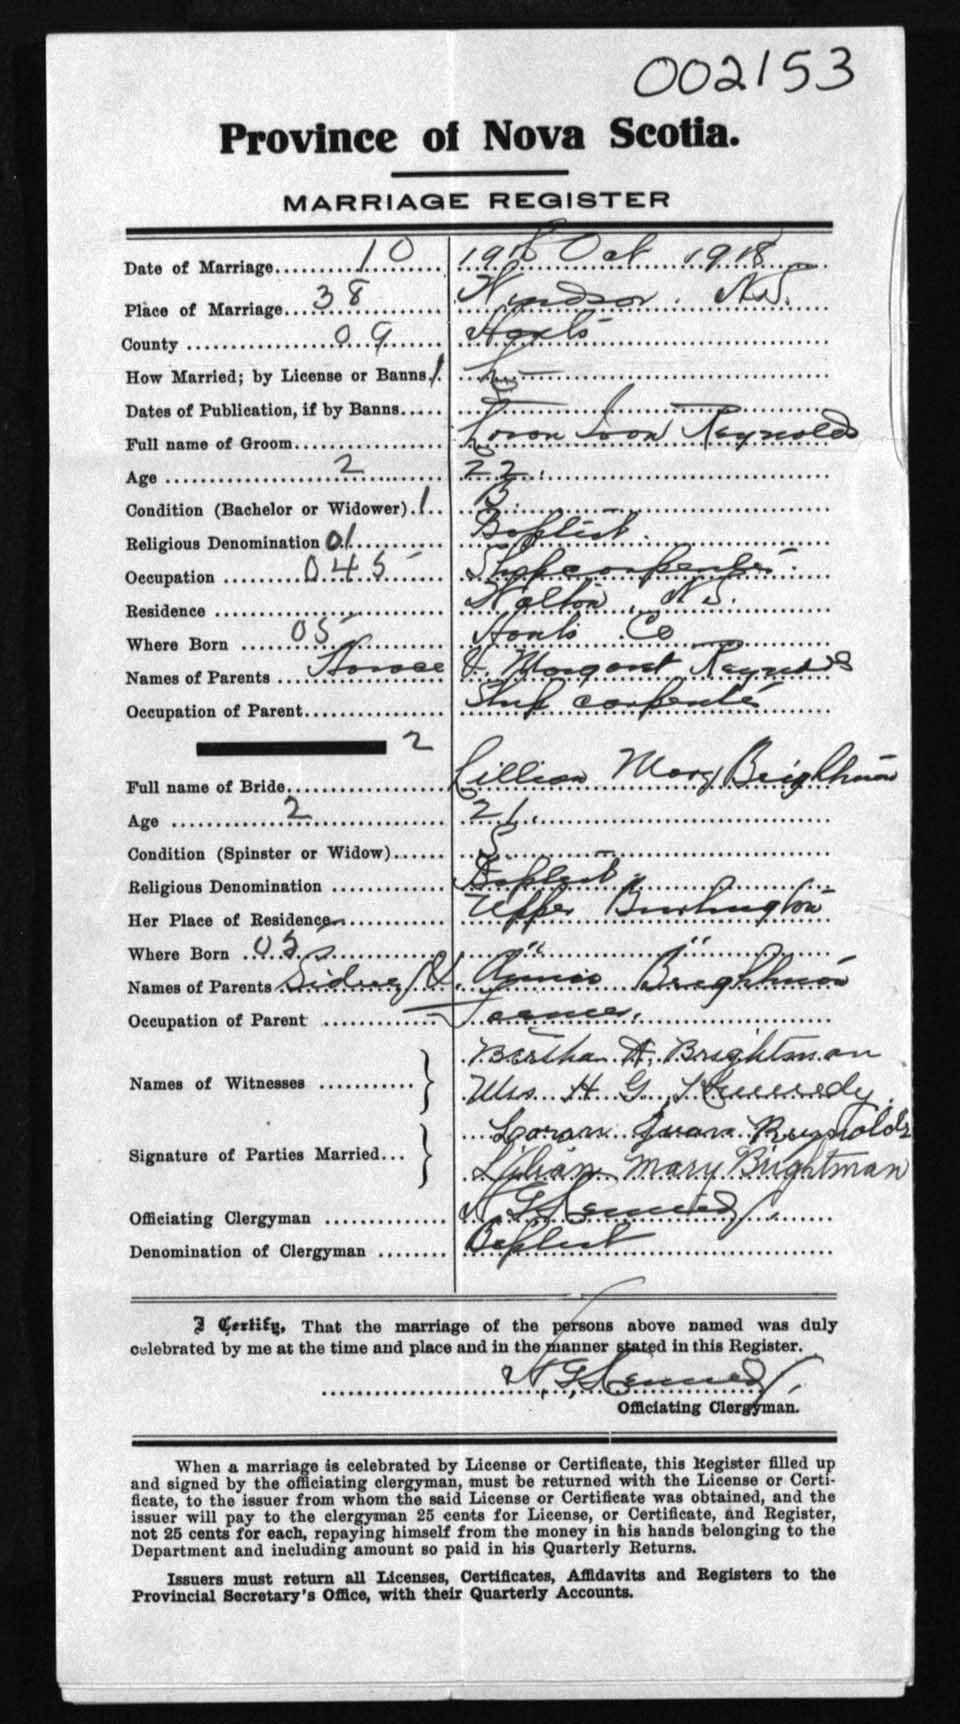 002153
Province of Nova Scotia.
MARRIAGE REGISTER
Date of Marriage 10 Oct 1918
Place of Marriage 38 Windsor. N.S.
County 09 Hants
How Married; by License or Banns 1
Dates of Publication, if by Banns
Full name of Groom Loran Ivan Reynolds
Age 2 22.
Condition (Bachelor or Widower) 1 B.
Religious Denomination 01 Baptist.
Occupation 045 Ship carpenter.
Residence Walton N.S.
Where Born 05 Hants Co
Names of Parents Horace & Margaret Reynolds
Occupation of Parent Ship carpenter
2
Full name of Bride Lillian Mary Brightman
Age 2 21.
Condition (Spinster or Widow) S
Religious Denomination Baptist
Her Place of Residence Upper Burlington
Where Born 05 " "
Names of Parents Sidney & Annie Brightman
Occupation of Parent Farmer.
Names of Witnesses } Bertha A. Brightman
Mrs. H. G. Kennedy.
Signature of Parties Married } Loran Ivan Reynolds
Lillian Mary Brightman
Officiating Clergyman H G Kennedy.
Denomination of Clergyman Baptist
I Certify, That the marriage of the persons above named was duly
celebrated by me at the time and place and in the manner stated in this Register.
H. G. Kennedy.
Officiating Clergyman.
When a marriage is celebrated by License or Certificate, this Register filled up
and signed by the officiating clergyman, must be returned with the License or Certi-
ficate, to the issuer from whom the said License or Certificate was obtained, and the
issuer will pay to the clergyman 25 cents for License, or Certificate, and Register,
not 25 cents for each, repaying himself from the money in his hands belonging to the
Department and including amount so paid in his Quarterly Returns.
Issuers must return all Licenses, Certificates, Affidavits and Registers to the
Provincial Secretary's Office, with their Quarterly Accounts.